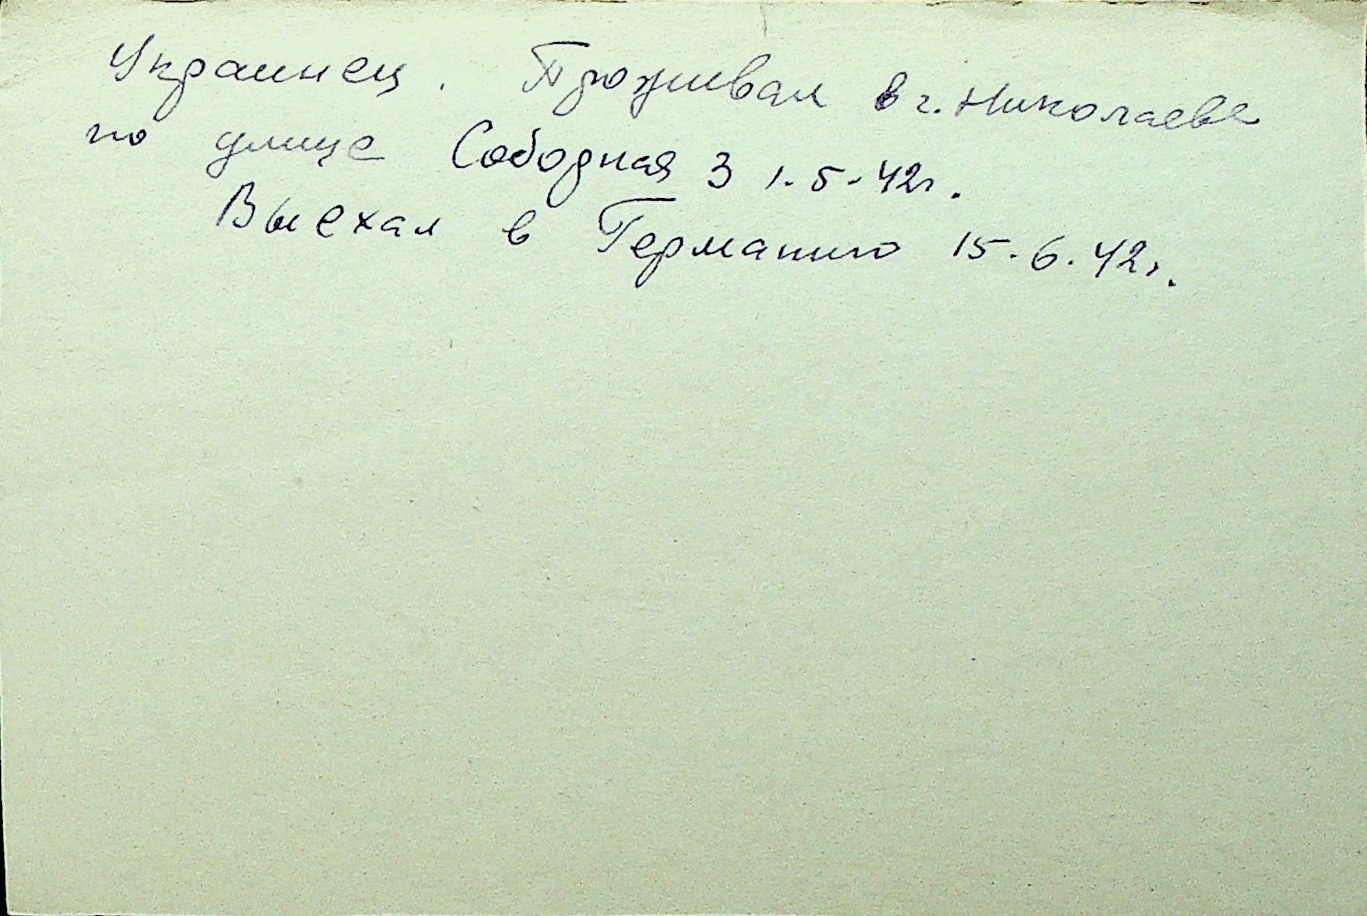 Украинец. Проживал в г. Николаеве
по улице Сободная 3 1.5.42г.
Выехал в Германию 15.6.42г.